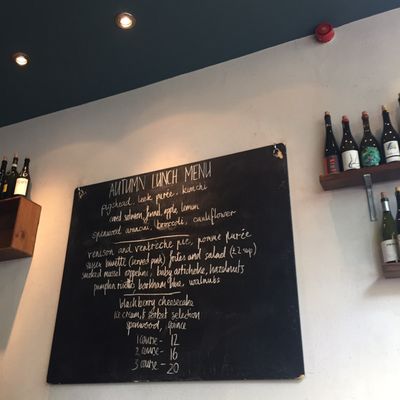 AUTUMN LUNCH MENU
pigshead, leek purée, kimchi
cured salmon, fennel, apple, lemon
spenwood arancini, broccoli, cauliflower
venison and ventrèche pie, pomme purée
bavette (served pink) frites and salad (£2 sup)
smoked mussel, baby artichoke, hazelnuts
pumpkin risotto, barkham blue, walnuts
blackberry cheesecake
ice cream & sorbet selection
spenwood, quince
1 course - 12
2 course - 16
3 course - 20